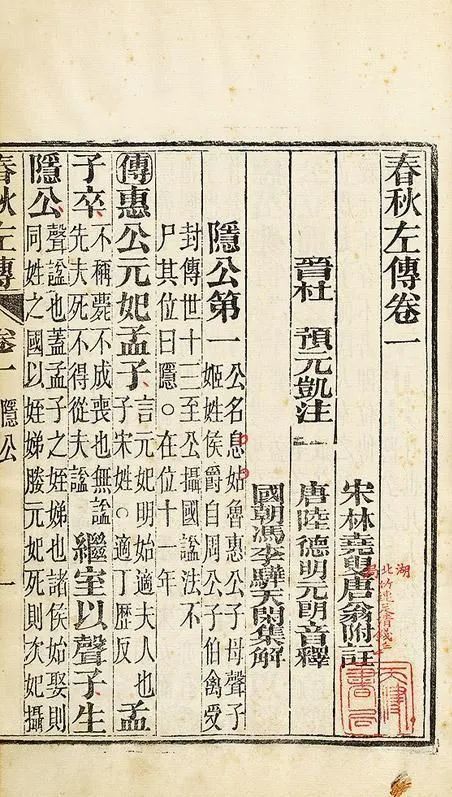 春秋左傳卷一
宋林堯叟唐翁附註
晉杜 預元凱注
唐陸德明元朗音釋
國朝馮李驊天閑集解
隱公第一 公名息姑魯惠公子母聲子
姬姓侯爵自周公子伯禽受
封傳世十三至公攝國謚法不
尸其位曰隱○在位十一年
傳惠公元妃孟子 言元妃明始適夫人也
子宋姓○適丁歷反 孟
子卒 不稱薨不成喪也無謚
先夫死不得從夫謚 繼室以聲子生
隱公 聲謚也蓋孟子之姪娣也諸侯始娶則
同姓之國以姪娣媵元妃死則次妃攝
春秋左傳 卷一 隱公 一